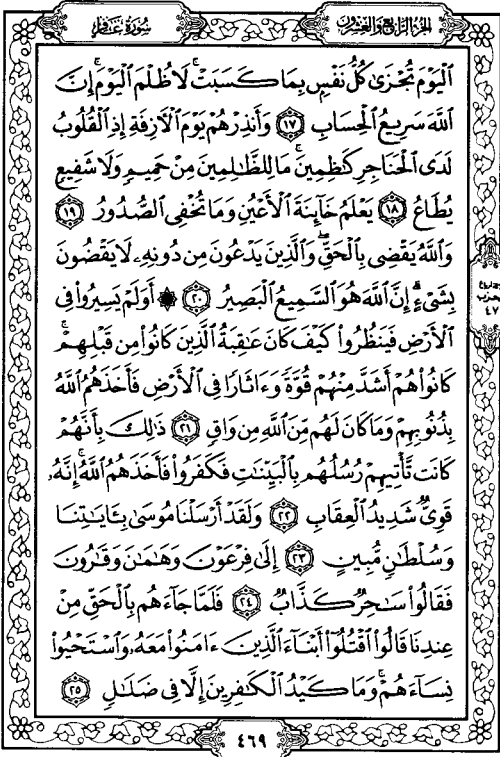 الجزء الرابع والعشرون
سورة غافر
ٱلْيَوْمَ تُجْزَىٰ كُلُّ نَفْسٍۭ بِمَا كَسَبَتْ ۚ لَا ظُلْمَ ٱلْيَوْمَ ۚ إِنَّ
ٱللَّهَ سَرِيعُ ٱلْحِسَابِ ١٧ وَأَنذِرْهُمْ يَوْمَ ٱلْـَٔازِفَةِ إِذِ ٱلْقُلُوبُ
لَدَى ٱلْحَنَاجِرِ كَٰظِمِينَ ۚ مَا لِلظَّٰلِمِينَ مِنْ حَمِيمٍ وَلَا شَفِيعٍ
يُطَاعُ ١٨ يَعْلَمُ خَآئِنَةَ ٱلْأَعْيُنِ وَمَا تُخْفِى ٱلصُّدُورُ ١٩
وَٱللَّهُ يَقْضِى بِٱلْحَقِّ ۖ وَٱلَّذِينَ يَدْعُونَ مِن دُونِهِۦ لَا يَقْضُونَ
بِشَىْءٍ ۗ إِنَّ ٱللَّهَ هُوَ ٱلسَّمِيعُ ٱلْبَصِيرُ ٢٠ ۞ أَوَلَمْ يَسِيرُوا۟ فِى
ٱلْأَرْضِ فَيَنظُرُوا۟ كَيْفَ كَانَ عَٰقِبَةُ ٱلَّذِينَ كَانُوا۟ مِن قَبْلِهِمْ ۚ
كَانُوا۟ هُمْ أَشَدَّ مِنْهُمْ قُوَّةً وَءَاثَارًا فِى ٱلْأَرْضِ فَأَخَذَهُمُ ٱللَّهُ
بِذُنُوبِهِمْ وَمَا كَانَ لَهُم مِّنَ ٱللَّهِ مِن وَاقٍ ٢١ ذَٰلِكَ بِأَنَّهُمْ
كَانَت تَّأْتِيهِمْ رُسُلُهُم بِٱلْبَيِّنَٰتِ فَكَفَرُوا۟ فَأَخَذَهُمُ ٱللَّهُ ۚ إِنَّهُۥ
قَوِىٌّ شَدِيدُ ٱلْعِقَابِ ٢٢ وَلَقَدْ أَرْسَلْنَا مُوسَىٰ بِـَٔايَٰتِنَا
وَسُلْطَٰنٍ مُّبِينٍ ٢٣ إِلَىٰ فِرْعَوْنَ وَهَٰمَٰنَ وَقَٰرُونَ
فَقَالُوا۟ سَٰحِرٌ كَذَّابٌ ٢٤ فَلَمَّا جَآءَهُم بِٱلْحَقِّ مِنْ
عِندِنَا قَالُوا۟ ٱقْتُلُوٓا۟ أَبْنَآءَ ٱلَّذِينَ ءَامَنُوا۟ مَعَهُۥ وَٱسْتَحْيُوا۟
نِسَآءَهُمْ ۚ وَمَا كَيْدُ ٱلْكَٰفِرِينَ إِلَّا فِى ضَلَٰلٍ ٢٥
٤٧
٤٦٩